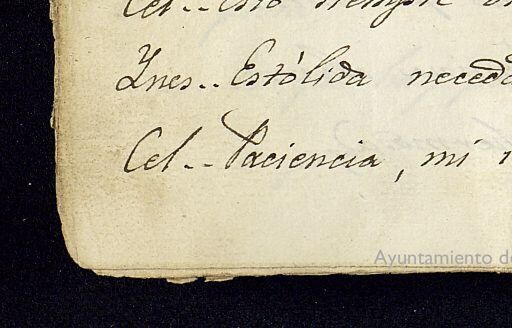 Cel.. Esto siempre
Ynes.. Estólida neceda
Cel.. Paciencia, mi
Ayuntamiento de